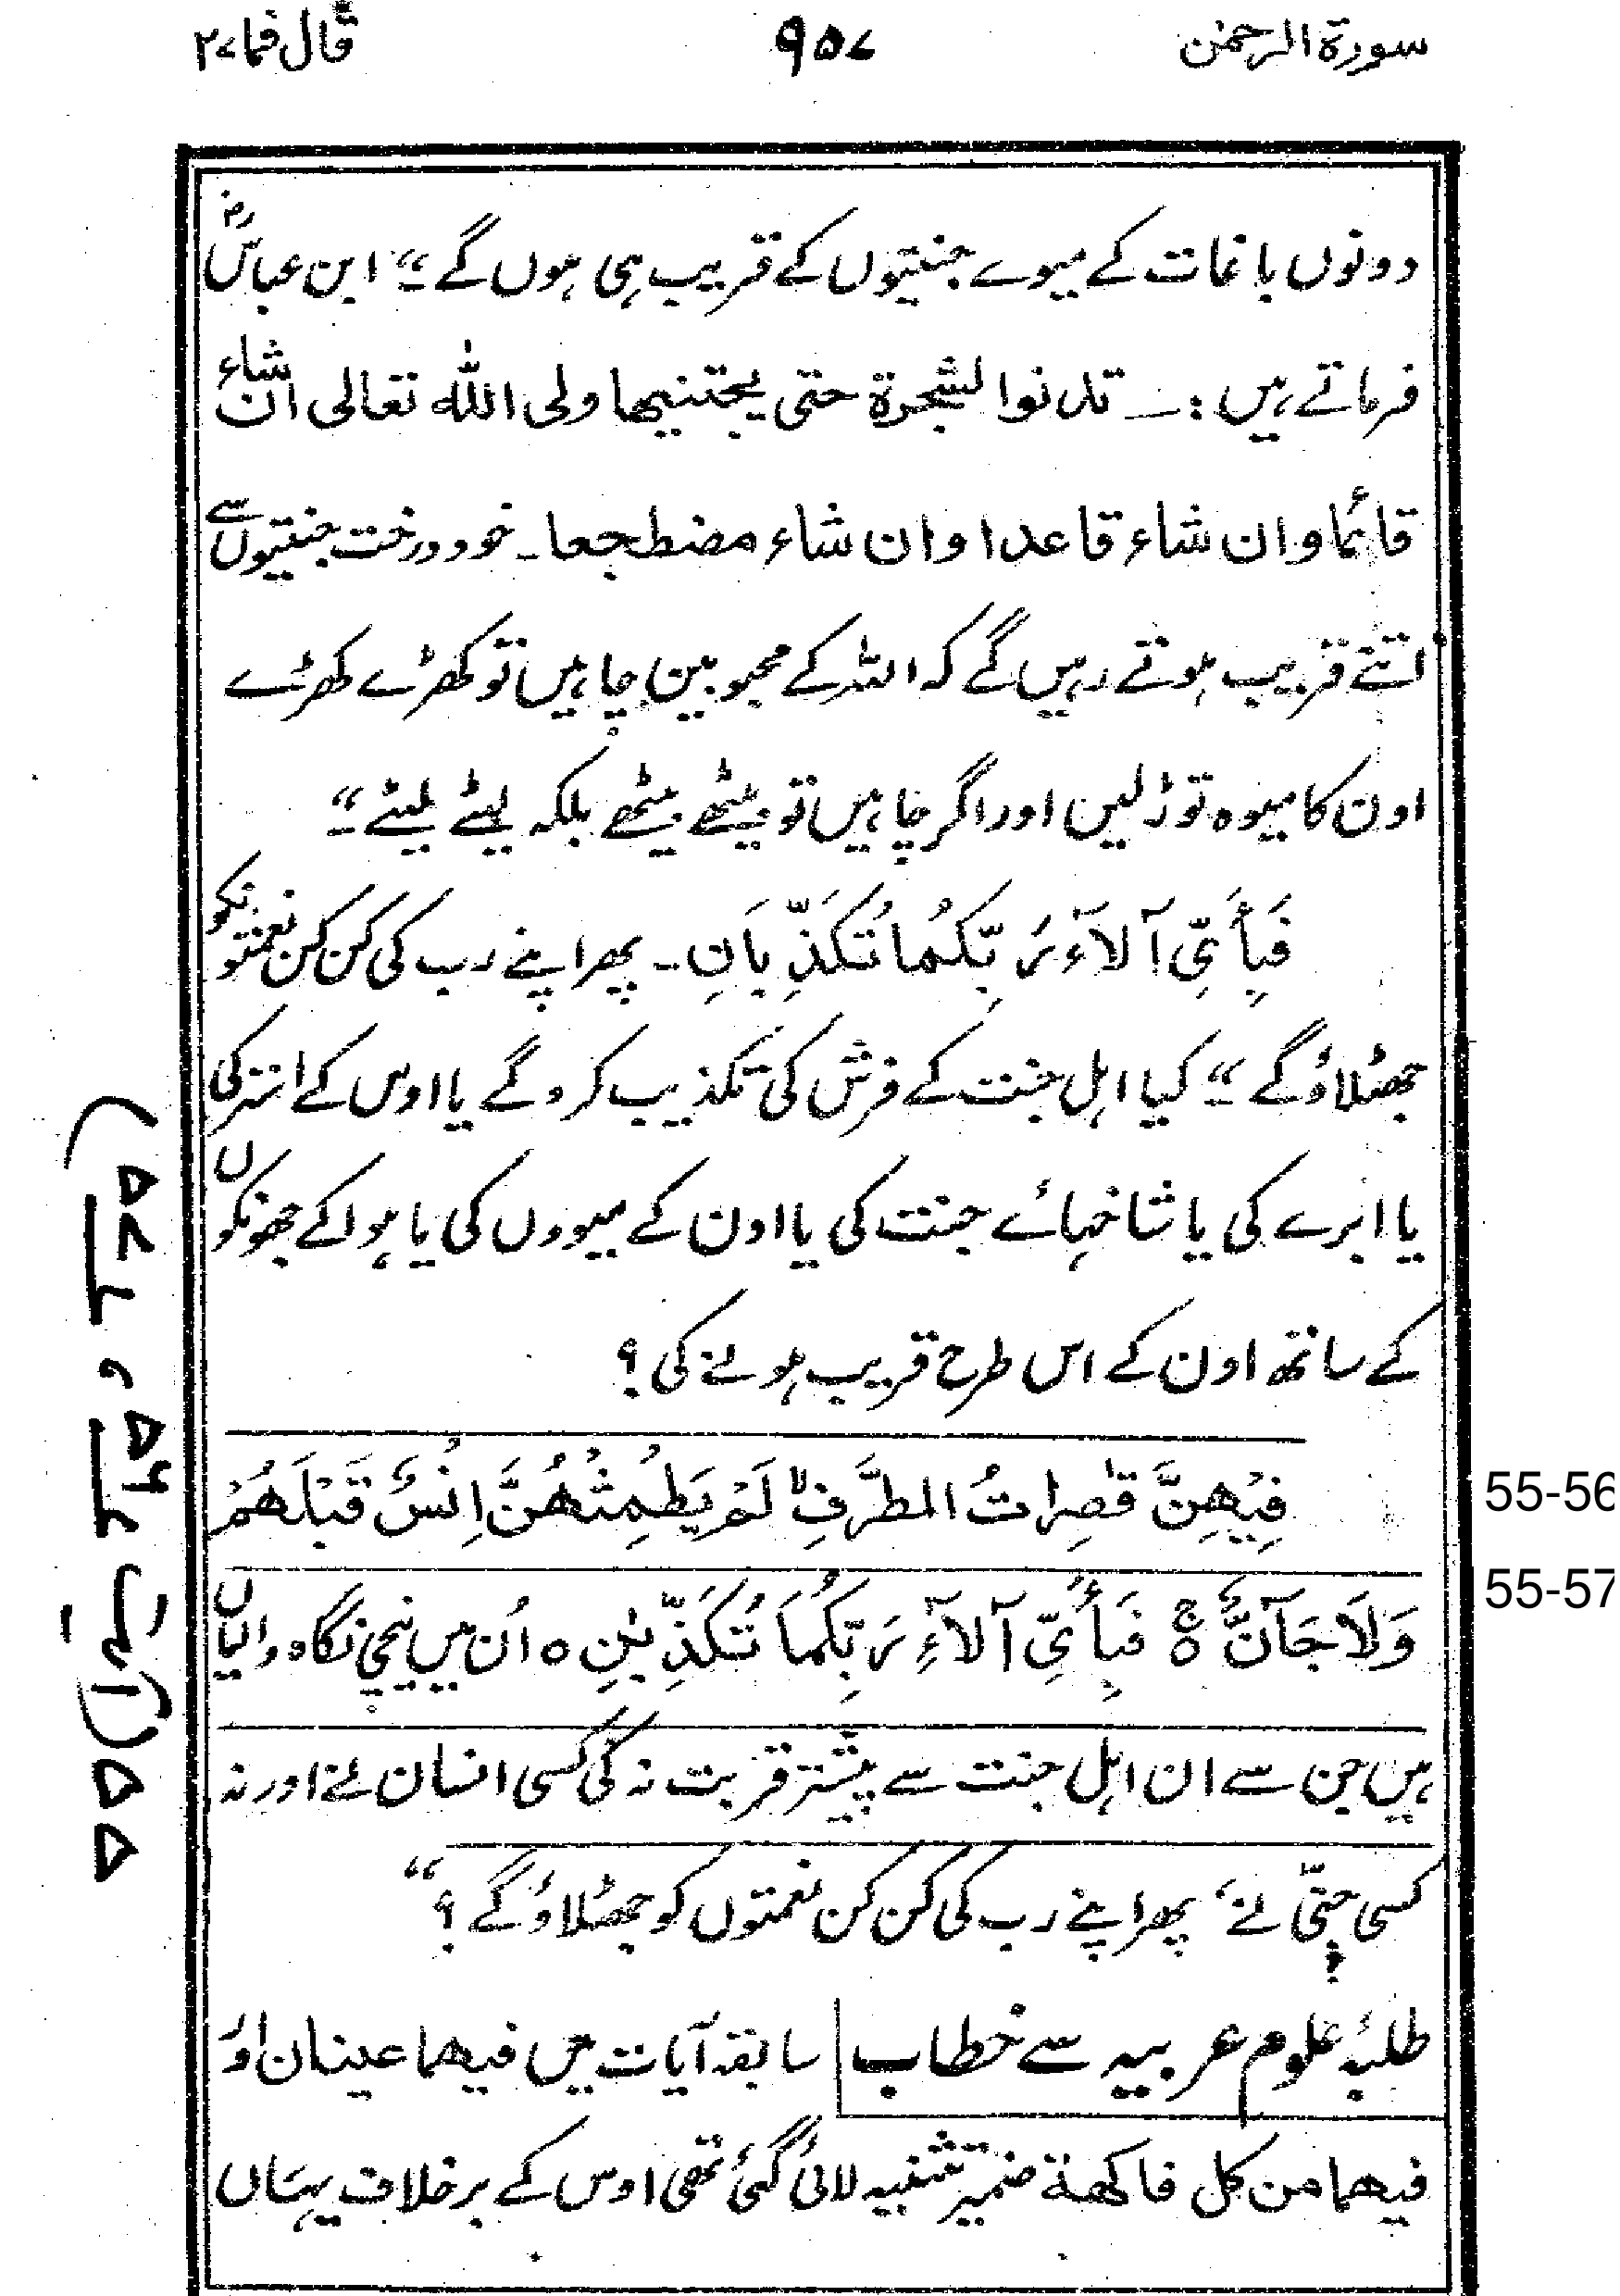 سورۃ الرحمٰن ۹۵۷ قال فما ۲۷
دونوں باغات کے میوے جنتیوں کے قریب ہی ہوں گے“ ابن عباسؓ
فرماتے ہیں :۔ تدنوا لشجرة حتی یجتنیها ولی اللّٰه تعالی ان شاء
قائما وان شاء قاعدا وان شاء مضطجعا۔ خود درخت جنتیوں سے
اتنے قریب ہوتے رہیں گے کہ اللہ کے محبوبین چاہیں تو کھڑے کھڑے
اون کا میوہ توڑ لیں اور اگر چاہیں تو بیٹھے بیٹھے بلکہ لیٹے لیٹے“
فَبِأَيِّ آلَآءِ رَبِّكُمَا تُكَذِّبَانِ۔ پھر اپنے رب کی کن کن نعمتونکو
جھٹلاؤ گے“ کیا اہل جنت کے فرش کی تکذیب کرو گے یا اوس کے استر کی
یا ابرے کی یا شاخہائے جنت کی یا اون کے میووں کی یا ہوا کے جھونکوں
کے ساتھ اون کے اس طرح قریب ہونے کی ؟
فِيْهِنَّ قٰصِرٰاتُ الطَّرْفِ لا لَمْ يَطْمِثْهُنَّ اِنْسٌ قَبْلَهُمْ
55-56
وَلَا جَآنٌّ ۚ ٥ فَبِأَيِّ آلَآءِ رَبِّكُمَا تُكَذِّبٰنِ ٥ اُن میں نیچی نگاہ والیاں
55-57
ہیں جن سے ان اہل جنت سے پیشتر قربت نہ کی کسی انسان نے اور نہ
کسی جنّی نے، پھر اپنے رب کی کن کن نعمتوں کو جھٹلاؤ گے ؟“
طلبۂ علوم عربیہ سے خطاب سابقہ آیات میں فیهما عینان اور
فیهما من کل فاکهة ضمیر تثنیہ لائی گئی تھی اوس کے برخلاف یہاں
۵۵ (آیت ۵۶، ۵۷)